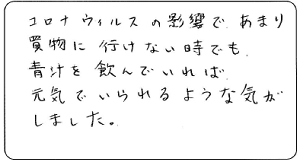 コロナウィルスの影響で、あまり
買物に行けない時でも、
青汁を飲んでいれば、
元気でいられるような気が
しました。